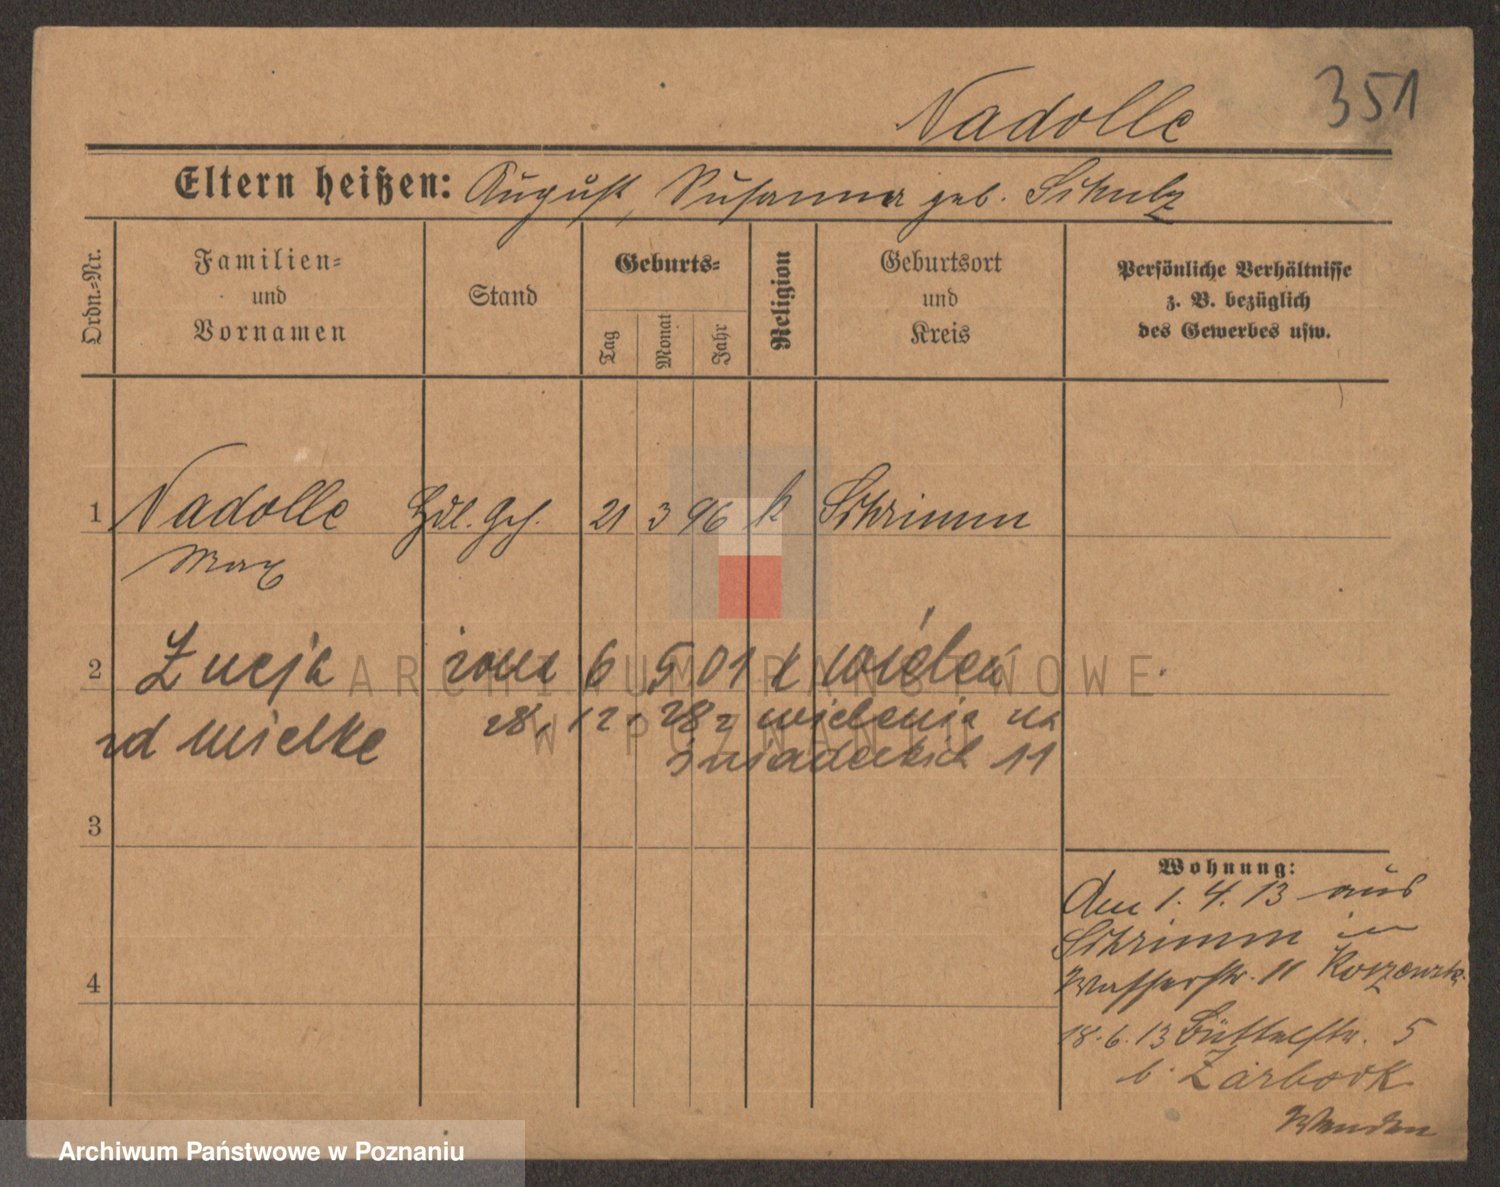 351
Nadolle
Eltern heißen: August, Susanna geb. Schulz
Ordn.-Nr.
Familien-
und
Vornamen
Stand
Geburts-
Tag
Monat
Jahr
Religion
Geburtsort
und
Kreis
Persönliche Verhältnisse
z. B. bezüglich
des Gewerbes usw.
1 Nadolle Hdl. Geh. 21 3 96 k Schrimm
Max
2 Łucja żona 6 5 01 k Wieleń
zd Mielke 28, 12, 28 z Wielenia na
Śniadeckich 11
3
4
Wohnung:
Am 1. 4. 13 aus
Schrimm in
Wasserstr. 11
18. 6. 13 Büttelstr. 5
b. Zarbock
ARCHIWUM PAŃSTWOWE
W POZNANIU
Archiwum Państwowe w Poznaniu